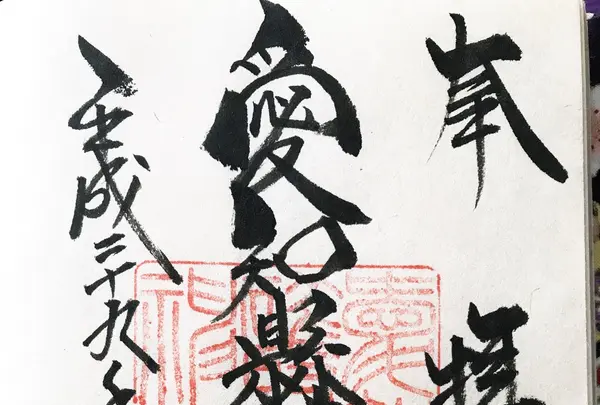 奉拝
愛知縣
平成二十九年